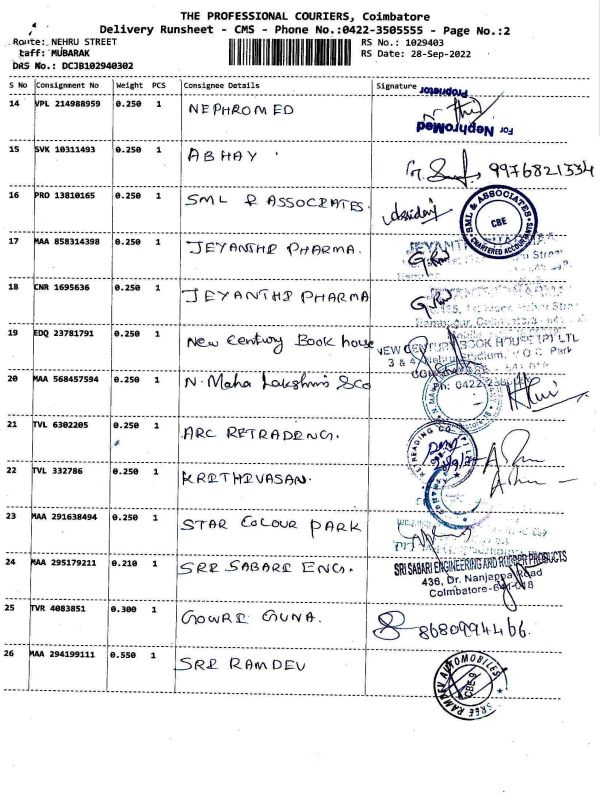 THE PROFESSIONAL COURIERS, Coimbatore
Delivery Runsheet - CMS - Phone No.:0422-3505555 - Page No.:2
Route: NEHRU STREET RS No.: 1029403
taff: MUBARAK RS Date: 28-Sep-2022
DRS No.: DCJB102940302
S No Consignment No Weight PCS Consignee Details Signature
Proprietor
14 VPL 214988959 0.250 1 NEPHROMED
For NephroMed
15 SVK 10311493 0.250 1 ABHAY 9976821334
16 PRO 13810165 0.250 1 SML & ASSOCIATES. SML & ASSOCIATES CBE CHARTERED ACCOUNTANTS
17 MAA 858314398 0.250 1 JEYANTHI PHARMA.
18 CNR 1695636 0.250 1 JEYANTHI PHARMA
19 EDQ 23781791 0.250 1 New Century Book house NEW CENTURY BOOK HOUSE (P) LTL
20 MAA 568457594 0.250 1 N. Maha Lakshmi & Co
21 TVL 6302205 0.250 1 ARC RETRADENG.
22 TVL 332786 0.250 1 KRITHIVASAN.
23 MAA 291638494 0.250 1 STAR COLOUR PARK
24 MAA 295179211 0.210 1 SRI SABARI ENG. SRI SABARI ENGINEERING AND RUBBER PRODUCTS
436, Dr. Nanjappa Road
Coimbatore-641-018
25 TVR 4083851 0.300 1 GOWRI GUNA. 8680994466.
26 MAA 294199111 0.550 1 SRI RAMDEV
SREE RAMDEV AUTOMOBILES CBE-9